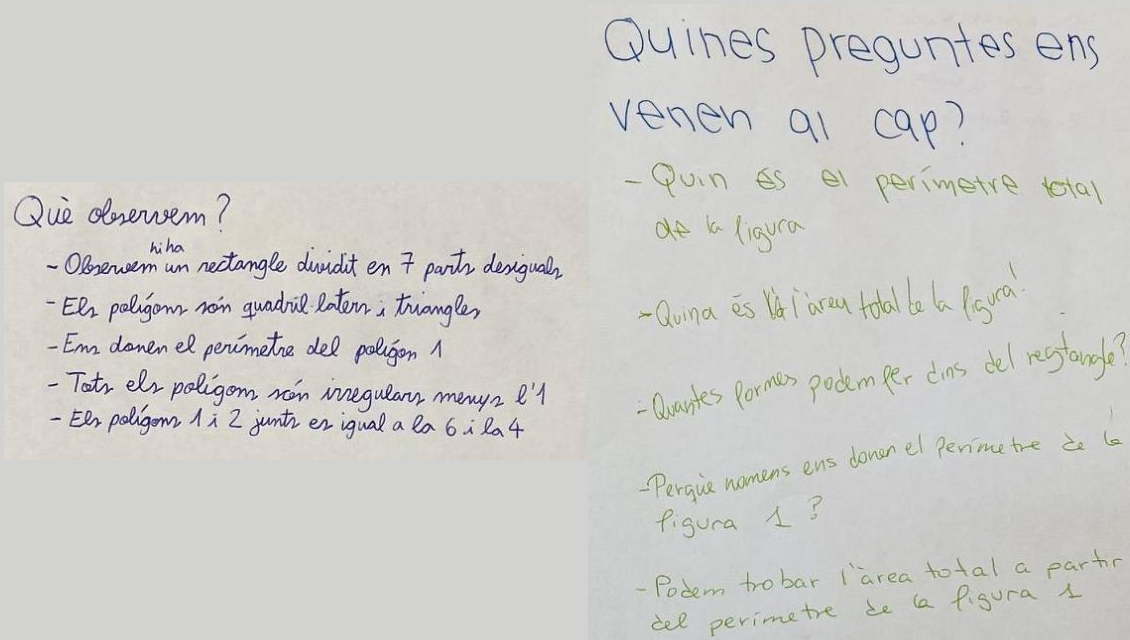 Què observem?
hi ha
- Observem un rectangle dividit en 7 parts desiguals
- Els polígons són quadril·laters i triangles
- Ens donen el perímetre del polígon 1
- Tots els polígons són irregulars menys l'1
- Els polígons 1 i 2 junts es igual a la 6 i la 4
Quines preguntes ens
venen al cap?
- Quin és el perímetre total
de la figura
- Quina és l'àrea total de la figura?
- Quantes formes podem fer dins del rectangle?
- Perquè nomens ens donen el perímetre de la
figura 1?
- Podem trobar l'àrea total a partir
del perímetre de la figura 1